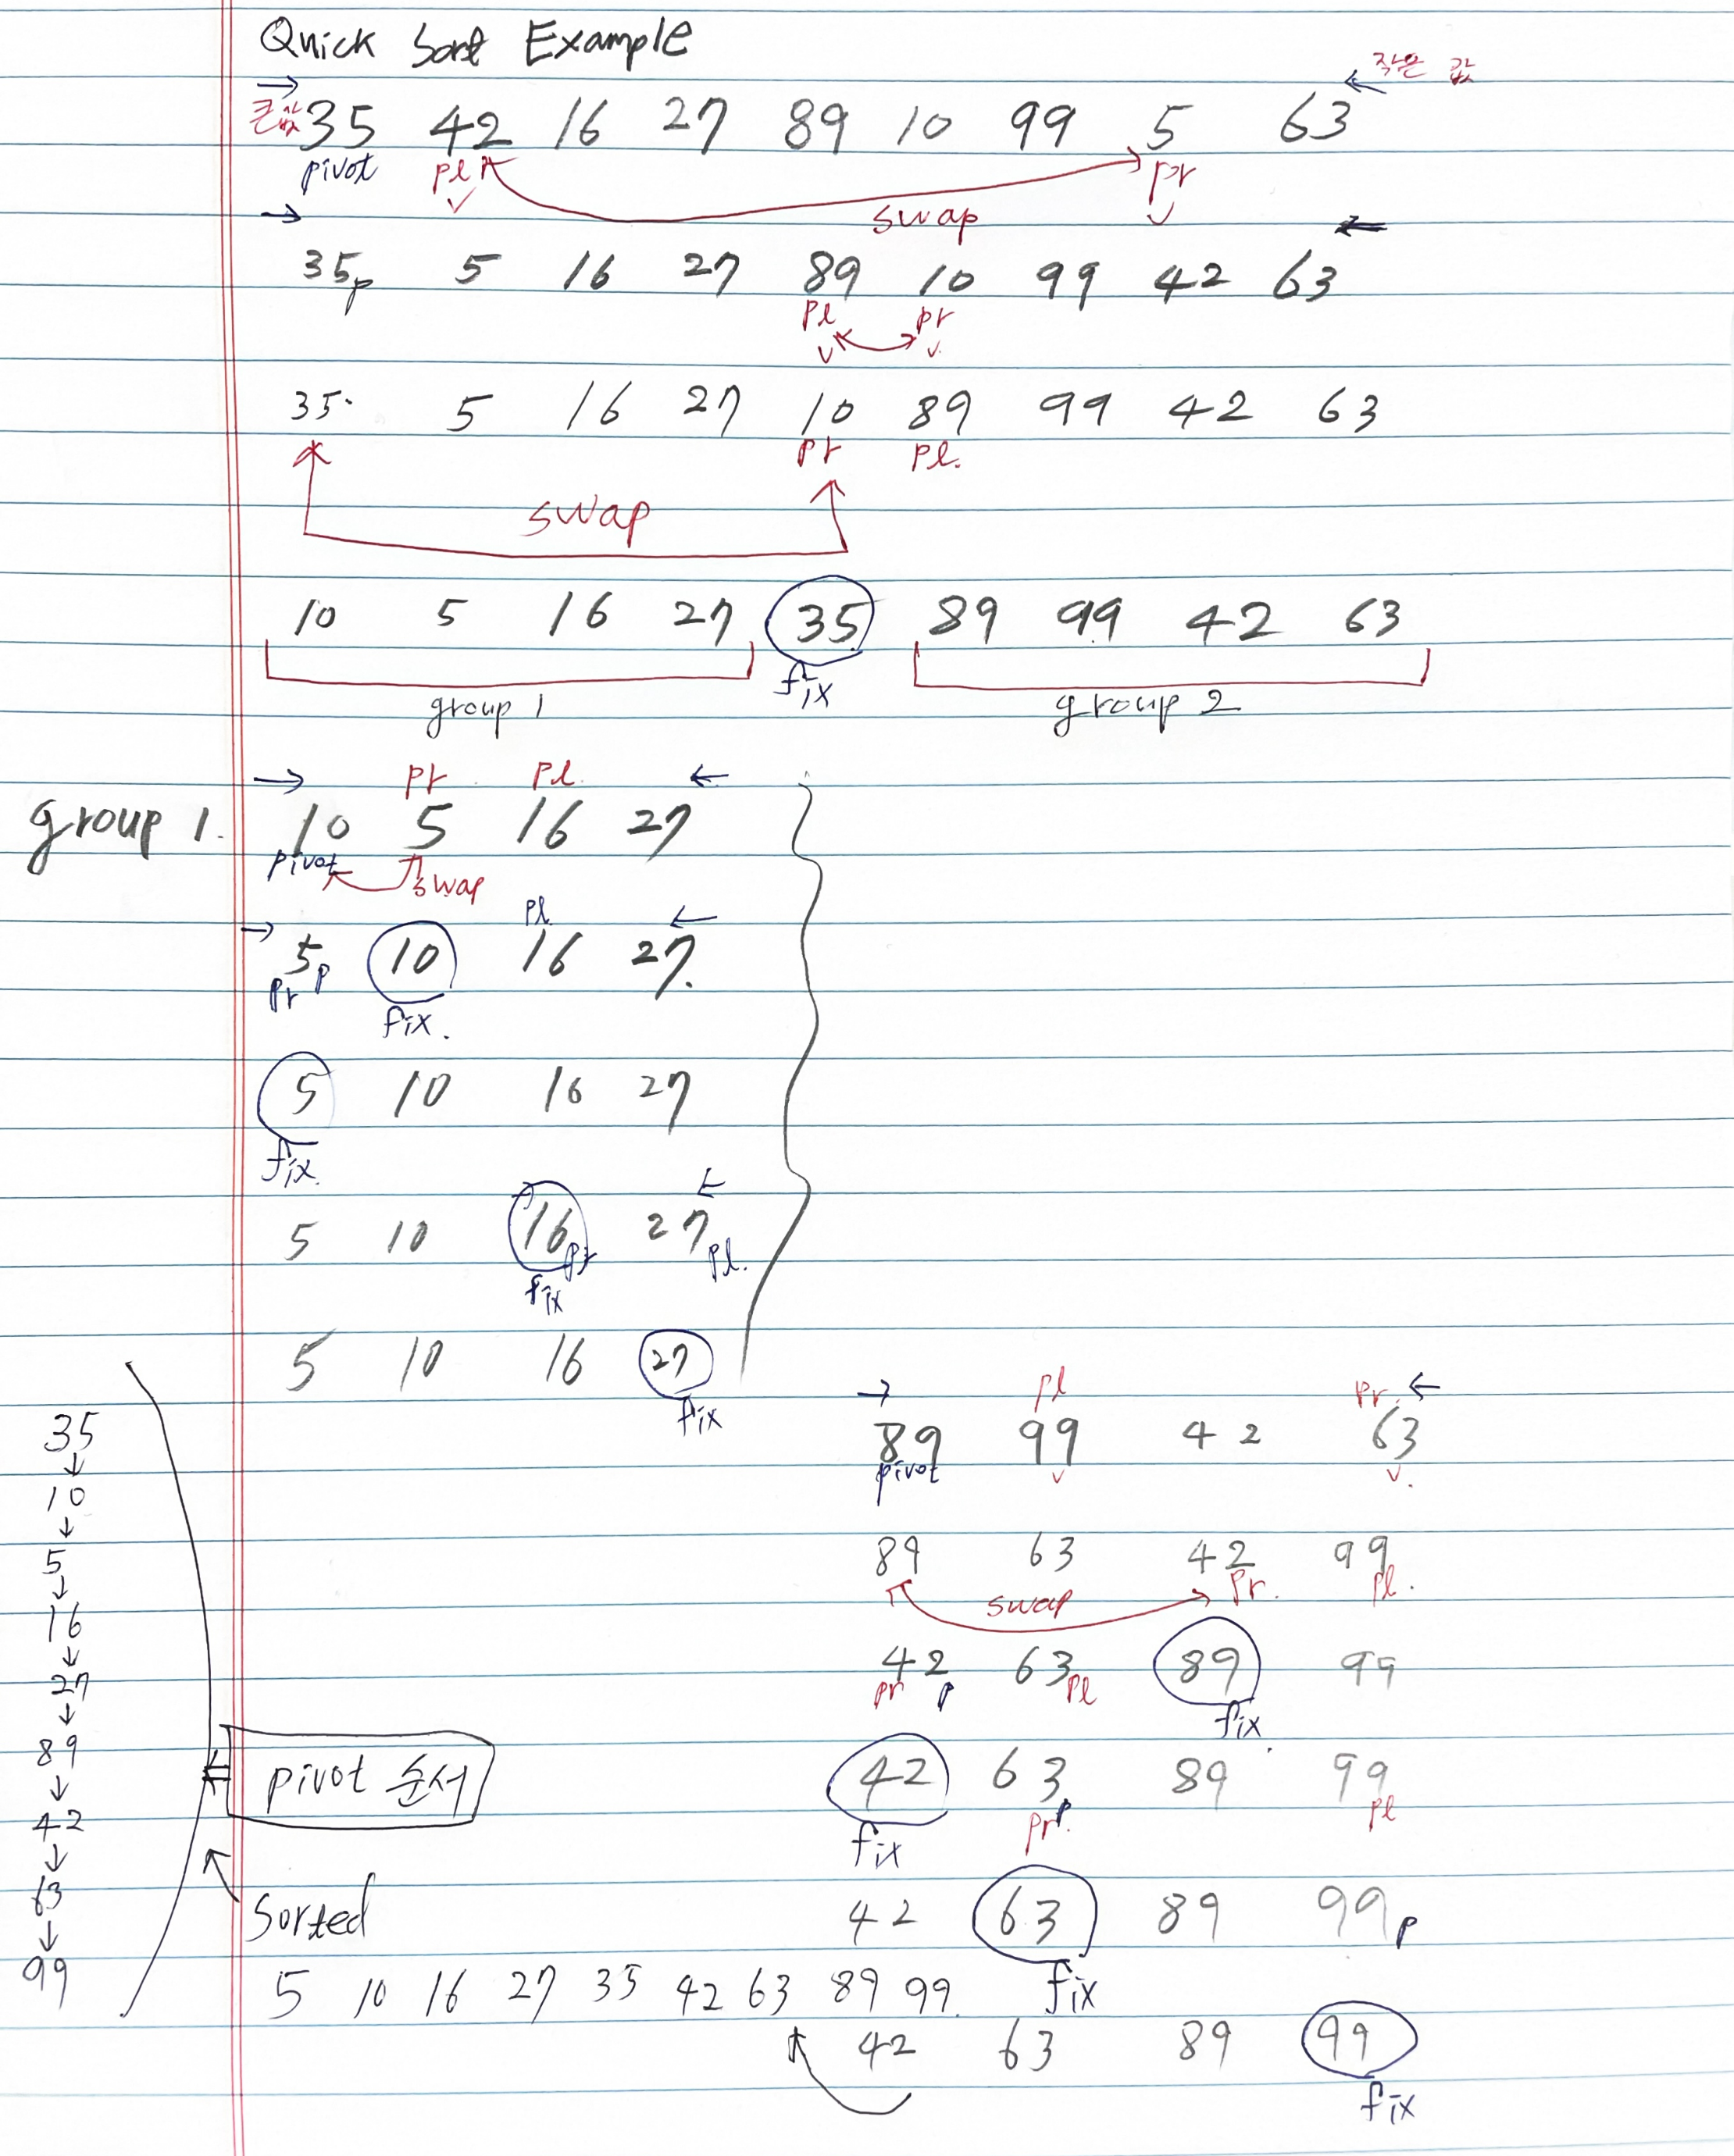 Quick Sort Example
작은 값
큰값 35 42 16 27 89 10 99 5 63
pivot pl pr
swap
35p 5 16 27 89 10 99 42 63
pl pr
35. 5 16 27 10 89 99 42 63
pr pl.
swap
10 5 16 27 35 89 99 42 63
fix
group 1 group 2
pr pl
group 1. 10 5 16 27
pivot swap
pl
5p 10 16 27.
pr fix.
5 10 16 27
fix.
5 10 16pr 27pl.
fix
5 10 16 27
fix
pl pr
89 99 42 63
pivot
89 63 42 99
pr. pl.
swap
42 63 89 99
pr p pl
fix.
42 63 89 99
p
pr. pl
fix
42 63 89 99p
fix
42 63 89 99
fix
35
10
5
16
27
89
42
63
99
pivot 순서
Sorted
5 10 16 27 35 42 63 89 99.